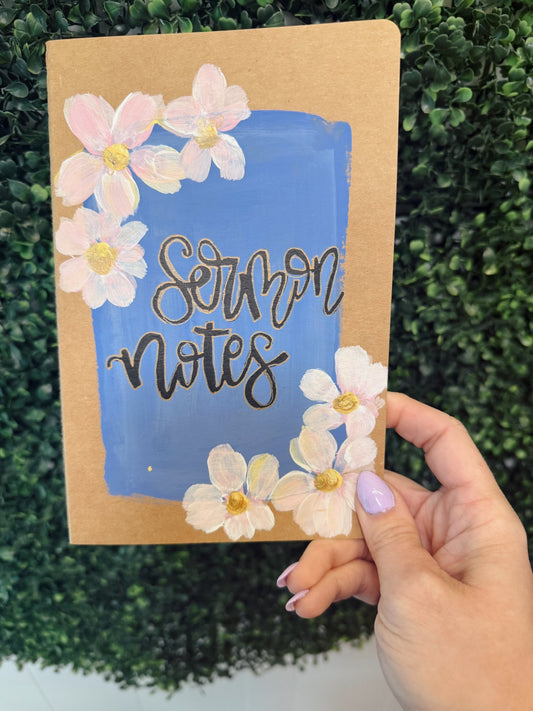 Sermon
notes